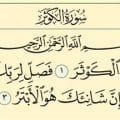 سُورَةُ الْكَوْثَر
بِسْمِ اللَّهِ الرَّحْمَٰنِ الرَّحِيمِ
الْكَوْثَرَ ١ فَصَلِّ لِرَبِّكَ
إِنَّ شَانِئَكَ هُوَ الْأَبْتَرُ ٣